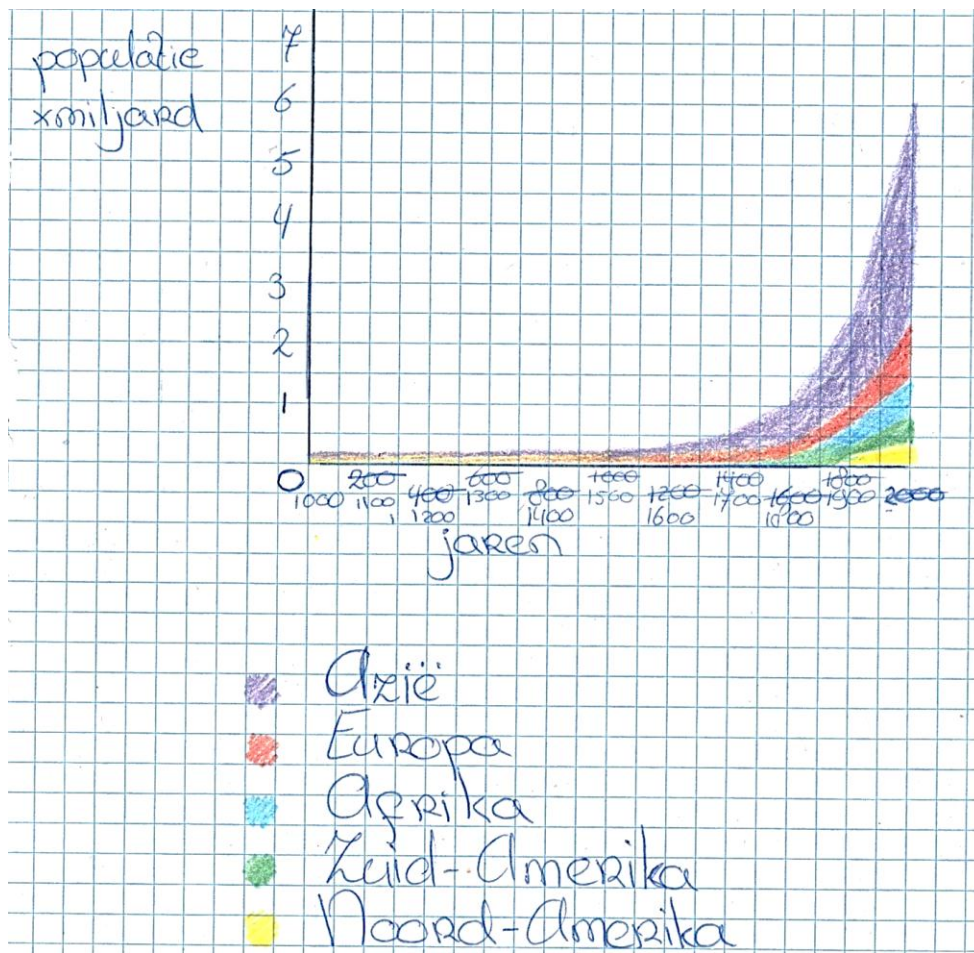 populatie
xmiljard
7
6
5
4
3
2
1
0
200 400 600 800 1000 1200 1400 1600 1800 2000
1000 1100 1200 1300 1400 1500 1600 1700 1800 1900
jaren
Azië
Europa
Afrika
Zuid-Amerika
Noord-Amerika